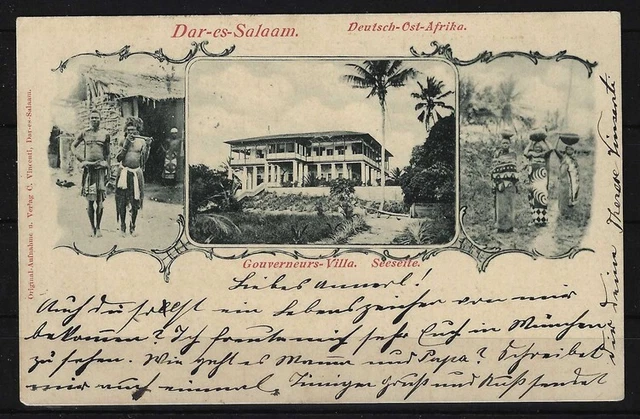 Dar-es-Salaam.
Deutsch-Ost-Afrika.
Original-Aufnahme u. Verlag C. Vincenti, Dar-es-Salaam.
Gouverneurs-Villa. Seeseite.
Liebes Annerl!
Auch du sollst ein Lebenszeichen von mir
bekommen! Ich freute mich sehr Euch in München
zu sehen. Wie geht es Mama und Papa? Schreibet
mir auch einmal. Innigen Gruß und Kuß sendet
Dir deine Therese Vincenti.